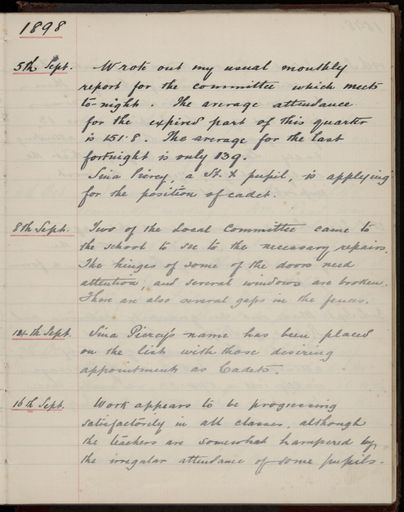 1898
5th Sept. Wrote out my usual monthly
report for the committee which meets
to-night. The average attendance
for the expired part of this quarter
is 151·8. The average for the last
fortnight is only 139.
Sina Piercy, a St. X pupil, is applying
for the position of cadet.
8th Sept. Two of the Local Committee came to
the school to see to the necessary repairs.
The hinges of some of the doors need
attention, and several windows are broken.
There are also several gaps in the fences.
14th Sept. Sina Piercy's name has been placed
on the list with those desiring
appointments as Cadets.
16th Sept. Work appears to be progressing
satisfactorily in all classes, although
the teachers are somewhat hampered by
the irregular attendance of some pupils.